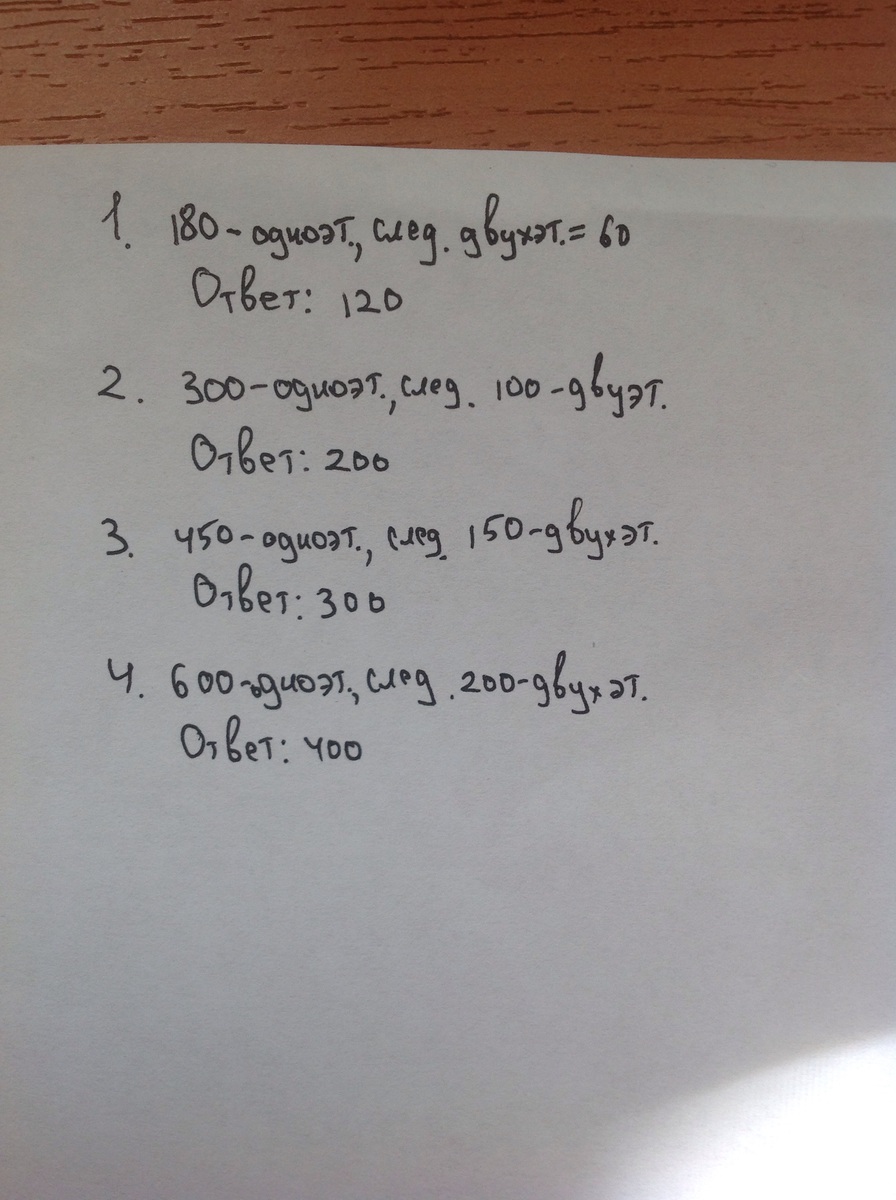 1. 180-одноэт., след. двухэт.= 60
Ответ: 120
2. 300-одноэт., след. 100-двуэт.
Ответ: 200
3. 450-одноэт., след. 150-двухэт.
Ответ: 300
4. 600-одноэт., след. 200-двухэт.
Ответ: 400